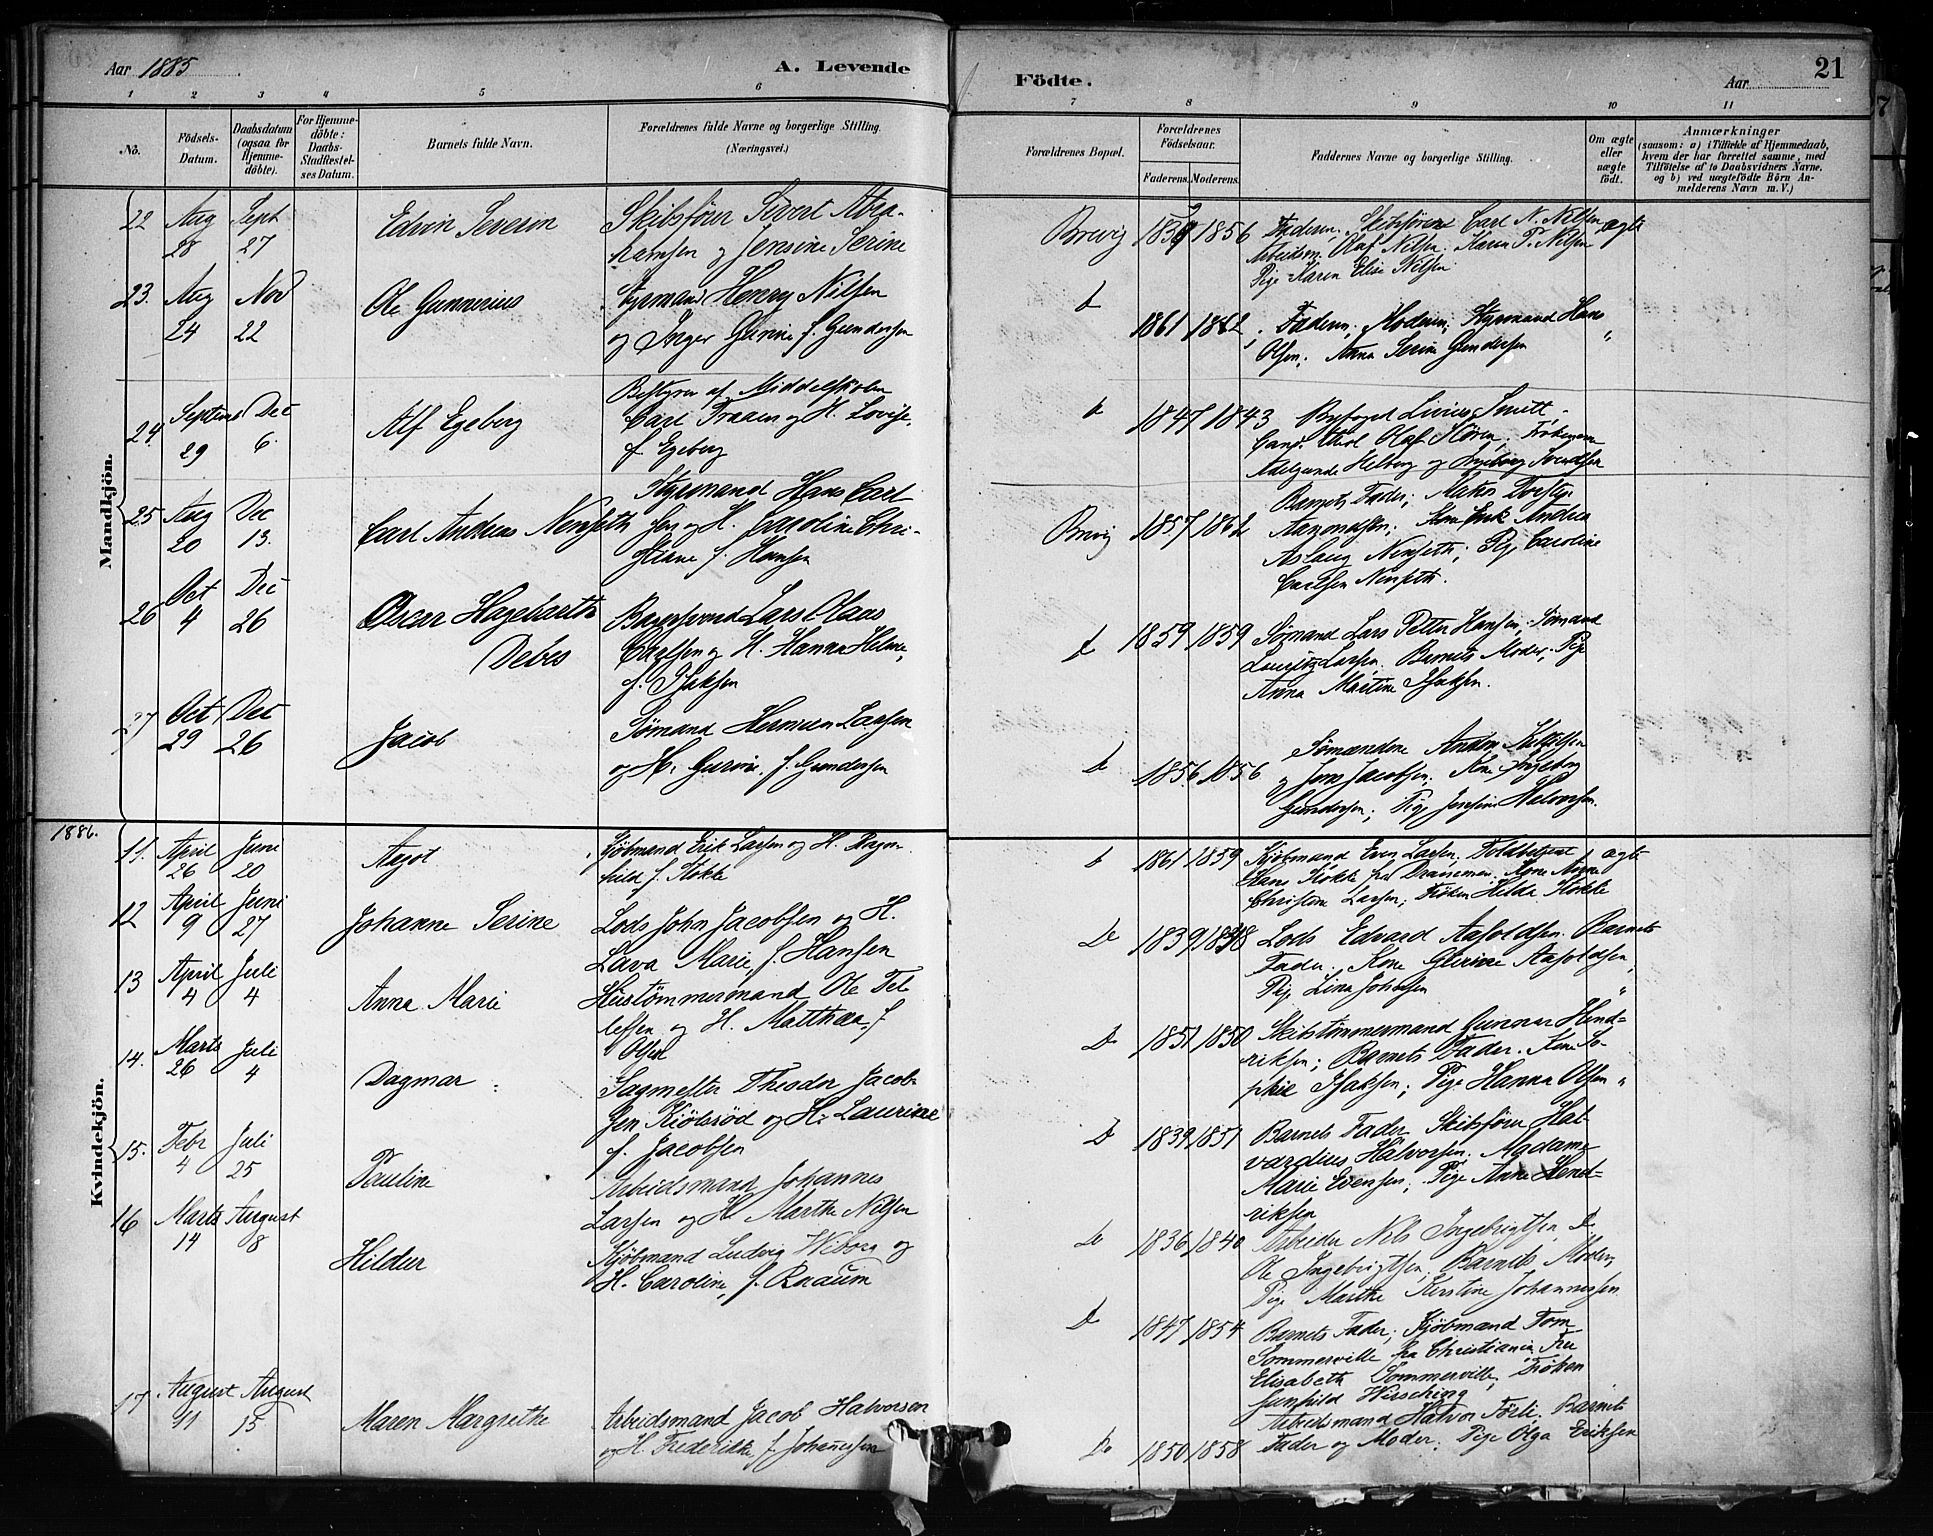 Aar 1885
A. Levende
Födte.
Aar
21
1 2 3 4 5 6 7 8 9 10 11
No.
Födsels-Datum.
Daabsdatum (ogsaa for Hjemmedöbte).
For Hjemmedöbte: Daabs-Stadfæstelses Datum.
Barnets fulde Navn.
Forældrenes fulde Navne og borgerlige Stilling. (Næringsvei.)
Forældrenes Bopæl.
Forældrenes Födselsaar.
Faderens. Moderens.
Faddernes Navne og borgerlige Stilling.
Om ægte eller uægte födt.
Anmærkninger
(saasom: a) i Tilfælde af Hjemmedaab, hvem der har forrettet samme, med Tilföielse af to Daabsvidners Navne. og b) ved uægtefödte Börn Anmelderens Navn m. V.)
Mandkjön.
22 Aug 28 Sept 27 Edvin Severin
Skibsfører Sivert Abra-
hamsen og Jensine Serine
Brevig 1856
Faderen, Skibsfører Carl N. Nilsen ægte
Arbeidsm. Olaf Nilsen. Karen P. Nilsen
Pige Karen Elise Nilsen
23. Aug 24 Nov 22 Ole Gunnerius
Styrmand Henry Nilsen
og Inger Gurine f. Gundersen
1861 1862
Faderen, Moderen, Styrmand Hans
Olsen, Anna Serine Gundersen "
24. Septem 29 Dec 6. Alf Egeberg
Bestyrer af Middelskolen
Carl Fraaen og H. Lovise,
f. Egeberg
1847 1843
Byfoged Smitt
Cand. theol Olaf Frøknerne
Adelgunde Helberg og Ingeborg Svendsen
25 Aug 20 Dec 13. Carl Andreas Nenseth
Styrmand Hans Carl
og H. Caroline Chri-
stiane f. Hansen
Brevig 1857 1862
Barnets Fader,
Aanondsen; Kone Andrea
Aslaug Nenseth; Pige Caroline
Carlsen Nenseth.
26 Oct 4 Dec 26 Oscar Hagebarth
Debes
Lars Claus
Carlsen og H. Hanna Helene,
f. Isaksen
1859 1859
Sømand Lars Petter Hansen, Sømand
Lauritz Larsen. Barnets Moder; Pige
Anna Martine Isaksen.
27 Oct 29 Dec 26 Jacob
Sømand Herman Larsen
og H. Gurine, f. Gundersen
1856. 1856
Sømændene
og Jens Jacobsen. Kone Ingeborg
Gundersen; Pige Josefine Halvorsen.
1886.
Kvindekjön.
11. April 26 Juni 20 Aagot
Kjøbmand Erik Larsen og H. Ragn-
hild f. Stokke
1861 1859
Kjøbmand Even Larsen; Toldbetjent ægte
Hans Stokke fra Drammen. Kone Anne
Christine Larsen; Frøken Hilda Stokke
12 April 9 Juni 27 Johanne Serine
Lods John Jacobsen og H.
Lava Marie, f. Hansen
Do 1839
Lods Edvard Aasoldsen. Barnets
Fader. Kone Gurine Aasoldsen,
Pige Lina Johnsen "
13 April 4 Juli 4 Anna Marie
Huustømmermand Ole Tel-
lefsen og H. Matthea, f
Olsen
Do 1851 1850
Skibstømmermand Gunnar Hend-
riksen; Barnets Fader. Kone So-
phie Isaksen; Pige Hanna Olsen "
14. Marts 26 Juli 4 Dagmar
Sagmester Theodor Jacob-
sen Kiölsröd og H. Laurine
f. Jacobsen
Do 1839 1851
Barnets Fader Skibsfører Hal-
vardius Halvorsen. Madame
Marie Evensen; Pige Anne Hend-
riksen
15. Febr 4 Juli 25 Pauline
Arbeidsmand Johannes
Larsen og H. Marthe Nilsen
Do 1836 1840
Arbeider Nils Ingebrigtsen, Do
Ole Ingebrigtsen, Barnets Moder,
Pige Marthe Kerstine Johannessen
16 Marts 14 August 8 Hildur
Kjøbmand Ludvig Wiborg og
H. Caroline, f. Knaum
Do 1847 1854
Barnets Fader; Kjøbmand Tom
Sommerville fra Christiania, Fru
Elisabeth Sommerville, Frøken
Gunhild Wissching
17 August 11 August 15 Maren Margrethe
Arbeidsmand Jacob Halvorsen
og H. Frederikke, f. Johannessen
Do 1850 1858
Arbeidsmand Halvor Förli; Barnets
Fader og Moder; Pige Olga Eriksen